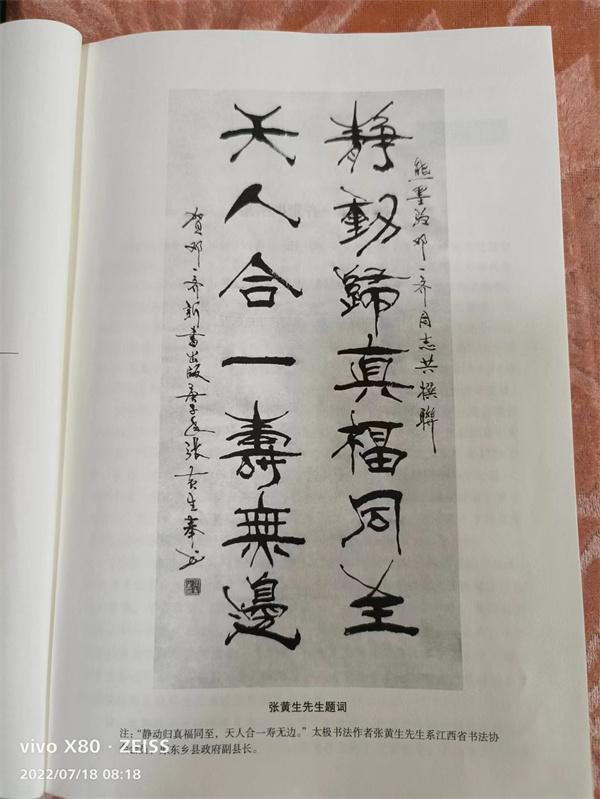 熊墨为邓一齐同志共撰联
靜動歸真福同至
天人合一壽無邊
贺邓一齐新書出版庚子冬张黄生奉
张黄生先生题词
注：“静动归真福同至，天人合一寿无边。”太极书法作者张黄生先生系江西省书法协
东乡县政府副县长。
vivo X80 · ZEISS
2022/07/18 08:18